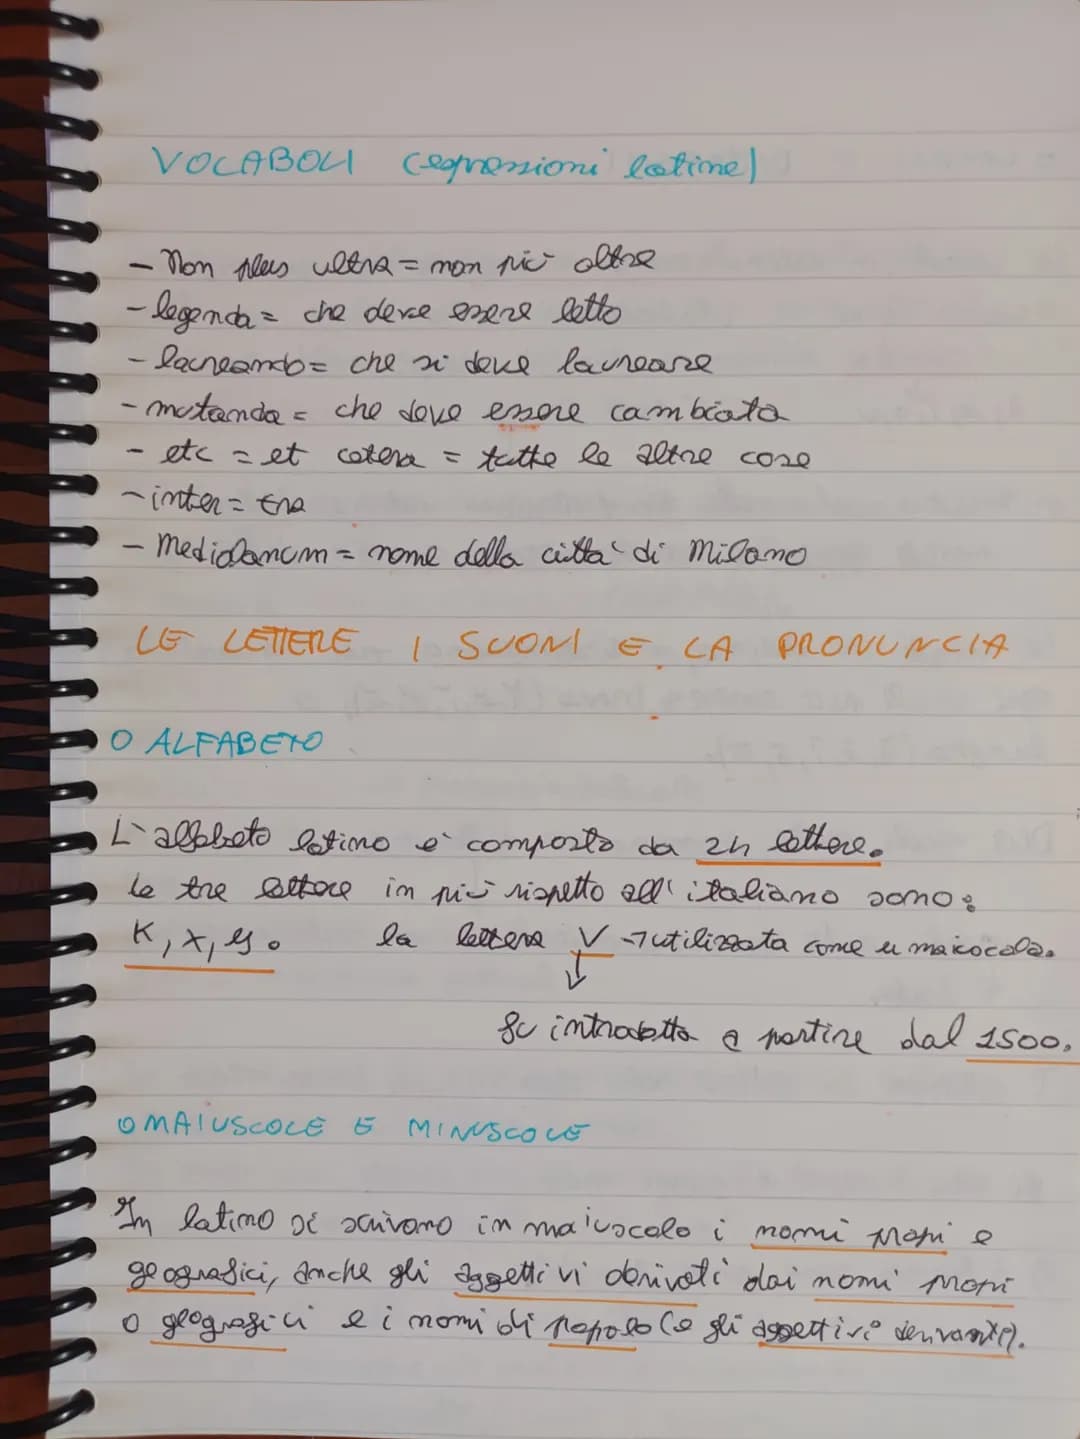 VOCABOLI (espressioni latine)
- Non plus ultra = non più oltre
- legenda = che deve essere letto
- laureando = che si deve laureare
- mutanda = che deve essere cambiata
- etc = et cetera = tutte le altre cose
- inter = tra
- Mediolanum = nome della città di Milano
LE LETTERE I SUONI E LA PRONUNCIA
O ALFABETO
L'alfabeto latino è composto da 24 lettere.
le tre lettere in più rispetto all'italiano sono:
K, X, y. la lettera V → utilizzata come u maiuscola.
↓
fu introdotta a partire dal 1500.
O MAIUSCOLE E MINUSCOLE
In latino si scrivono in maiuscolo i nomi propri e
geografici, anche gli aggettivi derivati dai nomi propri
o geografici e i nomi di popolo (e gli aggettivi derivanti).